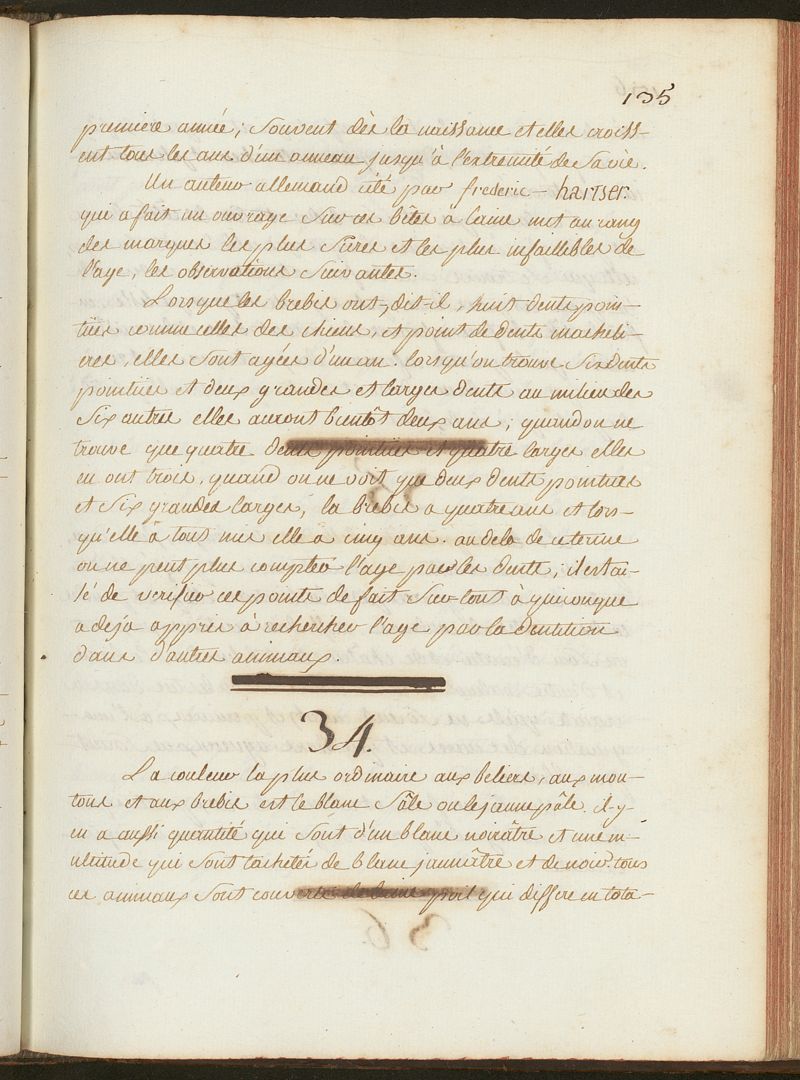 135
premiere année; souvent dès la naissance et elles croiss-
ent tous les ans d'un anneau jusqu'à l'extremité de sa vie.
Un auteur allemand cité par frederic - hartser.
qui a fait un ouvrage sur ces bêtes à laine met au rang
des marques les plus sûres et les plus infaillibles de
l'age, les observations suivantes.
Lorsque les brebis ont, dit-il, huit dents poin-
tües comme celles des chiens, et point de dents macheli-
eres, elles sont agées d'un an. lorsqu'on trouve six dents
pointües et deux grandes et larges dents au milieu des
six autres elles auront bientôt deux ans; quand on ne
trouve que quatre dents pointües et quatre larges elles
en ont trois, quand on ne voit que deux dents pointües
et six grandes larges, la brebis a quatre ans et lors-
qu'elle à tous mis elle a cinq ans. au dela de ce terme
on ne peut plus compter l'age par les dents; il est ai-
sé de verifier ces points de fait sur-tout à quiconque
a deja appris à rechercher l'age par la dentition
dans d'autres animaux.
34.
La couleur la plus ordinaire aux beliers, aux mou-
tons et aux brebis est le blanc sâle ou le jaune pâle. il y-
en a aussi quantité qui sont d'un blanc noirâtre et une m-
ultitude qui sont tachetés de blanc jaunâtre et de noir. tous
ces animaux sont couverts de laine poil qui differe en tota-
36.